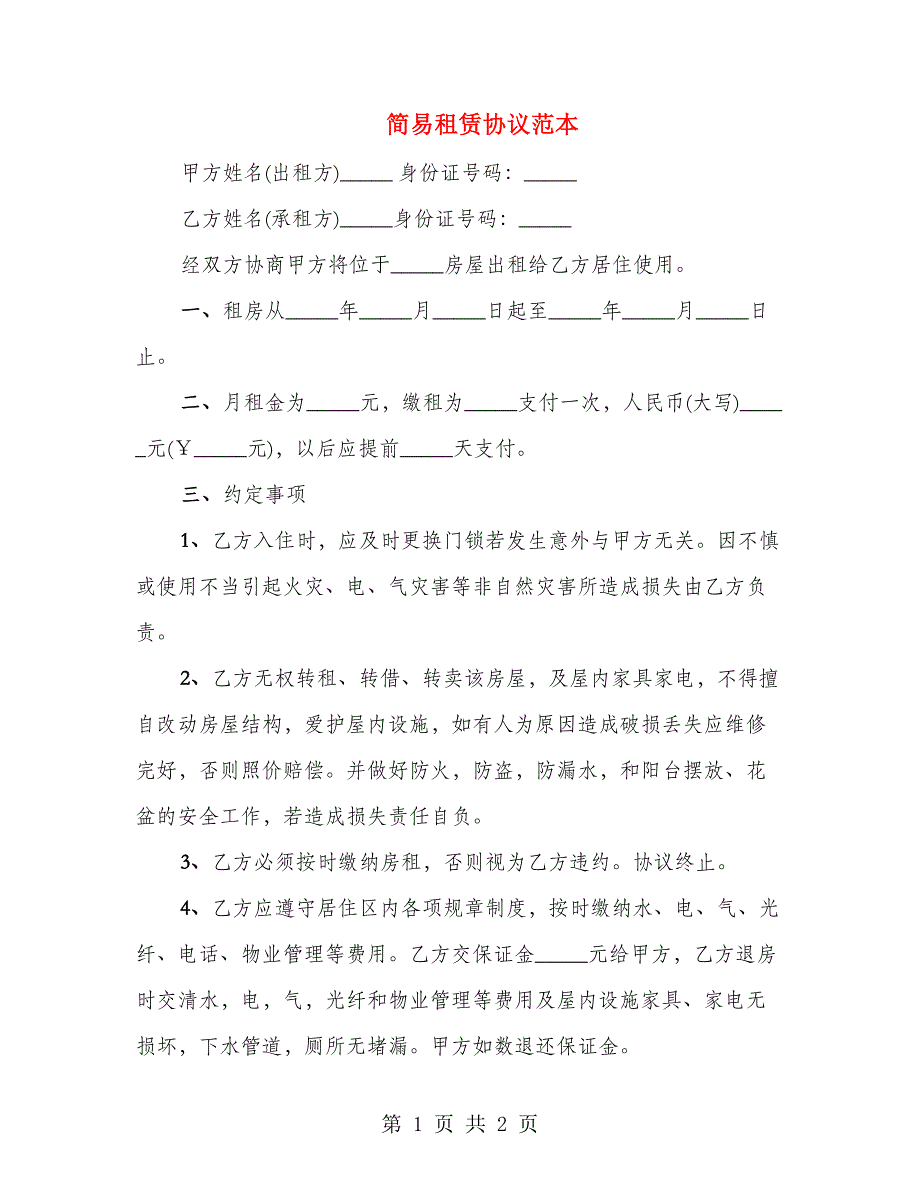 简易租赁协议范本
甲方姓名(出租方)_____ 身份证号码：_____
乙方姓名(承租方)_____身份证号码：_____
经双方协商甲方将位于_____房屋出租给乙方居住使用。
一、租房从_____年_____月_____日起至_____年_____月_____日
止。
二、月租金为_____元，缴租为_____支付一次，人民币(大写)____
_元(￥_____元)，以后应提前_____天支付。
三、约定事项
1、乙方入住时，应及时更换门锁若发生意外与甲方无关。因不慎
或使用不当引起火灾、电、气灾害等非自然灾害所造成损失由乙方负
责。
2、乙方无权转租、转借、转卖该房屋，及屋内家具家电，不得擅
自改动房屋结构，爱护屋内设施，如有人为原因造成破损丢失应维修
完好，否则照价赔偿。并做好防火，防盗，防漏水，和阳台摆放、花
盆的安全工作，若造成损失责任自负。
3、乙方必须按时缴纳房租，否则视为乙方违约。协议终止。
4、乙方应遵守居住区内各项规章制度，按时缴纳水、电、气、光
纤、电话、物业管理等费用。乙方交保证金_____元给甲方，乙方退房
时交清水，电，气，光纤和物业管理等费用及屋内设施家具、家电无
损坏，下水管道，厕所无堵漏。甲方如数退还保证金。
第 1 页 共 2 页